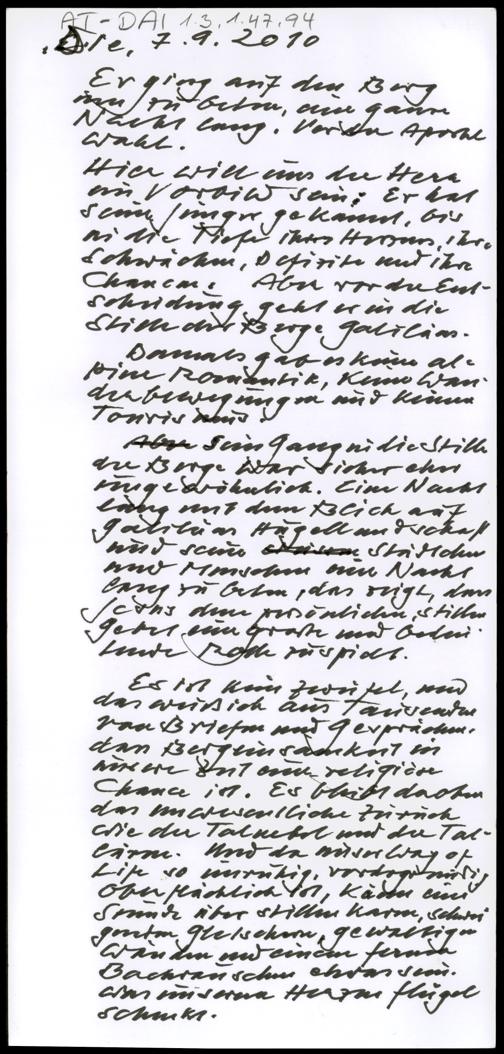 AT-DAI 1.3.1.47.94
Die, 7.9.2010
Er ging auf den Berg
um zu beten, eine ganze
Nacht lang. Vor der Apostel
wahl.
Hier will uns der Herr
ein Vorbild sein: Er hat
seine Jünger gekannt, bis
in die Tiefe ihres Herzens, ihre
Schwächen, Defizite und ihre
Chancen. Aber vor der Ent-
scheidung geht er in die
Stille der Berge Galiläas.
Damals gab es keine al-
pine Romantik, keine Wan-
derbewegungen und keinen
Tourismus.
Aber Sein Gang in die Stille
der Berge war sicher eher
ungewöhnlich. Eine Nacht
lang mit dem Blick auf
Galiläas Hügellandschaft
und seine Städtchen
und Menschen eine Nacht
lang zu beten, das zeigt, dass
Jesus dem persönlichen, stillen
Gebet eine große und bedeu-
tende Rolle zuspielt.
Es ist kein Zweifel, und
das weiß ich aus Tausenden
von Briefen und Gesprächen,
dass Bergeinsamkeit in
unserer Zeit eine religiöse
Chance ist. Es bleibt da oben
das unwesentliche zurück
wie der Talnebel und der Tal-
lärm. Und da unser Way of
Life so unruhig, vordergründig
oberflächlich ist, kann eine
Stunde über stillen Karen, schwei
genden Gletschern, gewaltigen
Wänden und einem fernen
Bachrauschen etwas sein.
was unserem Herzen Flügel
schenkt.